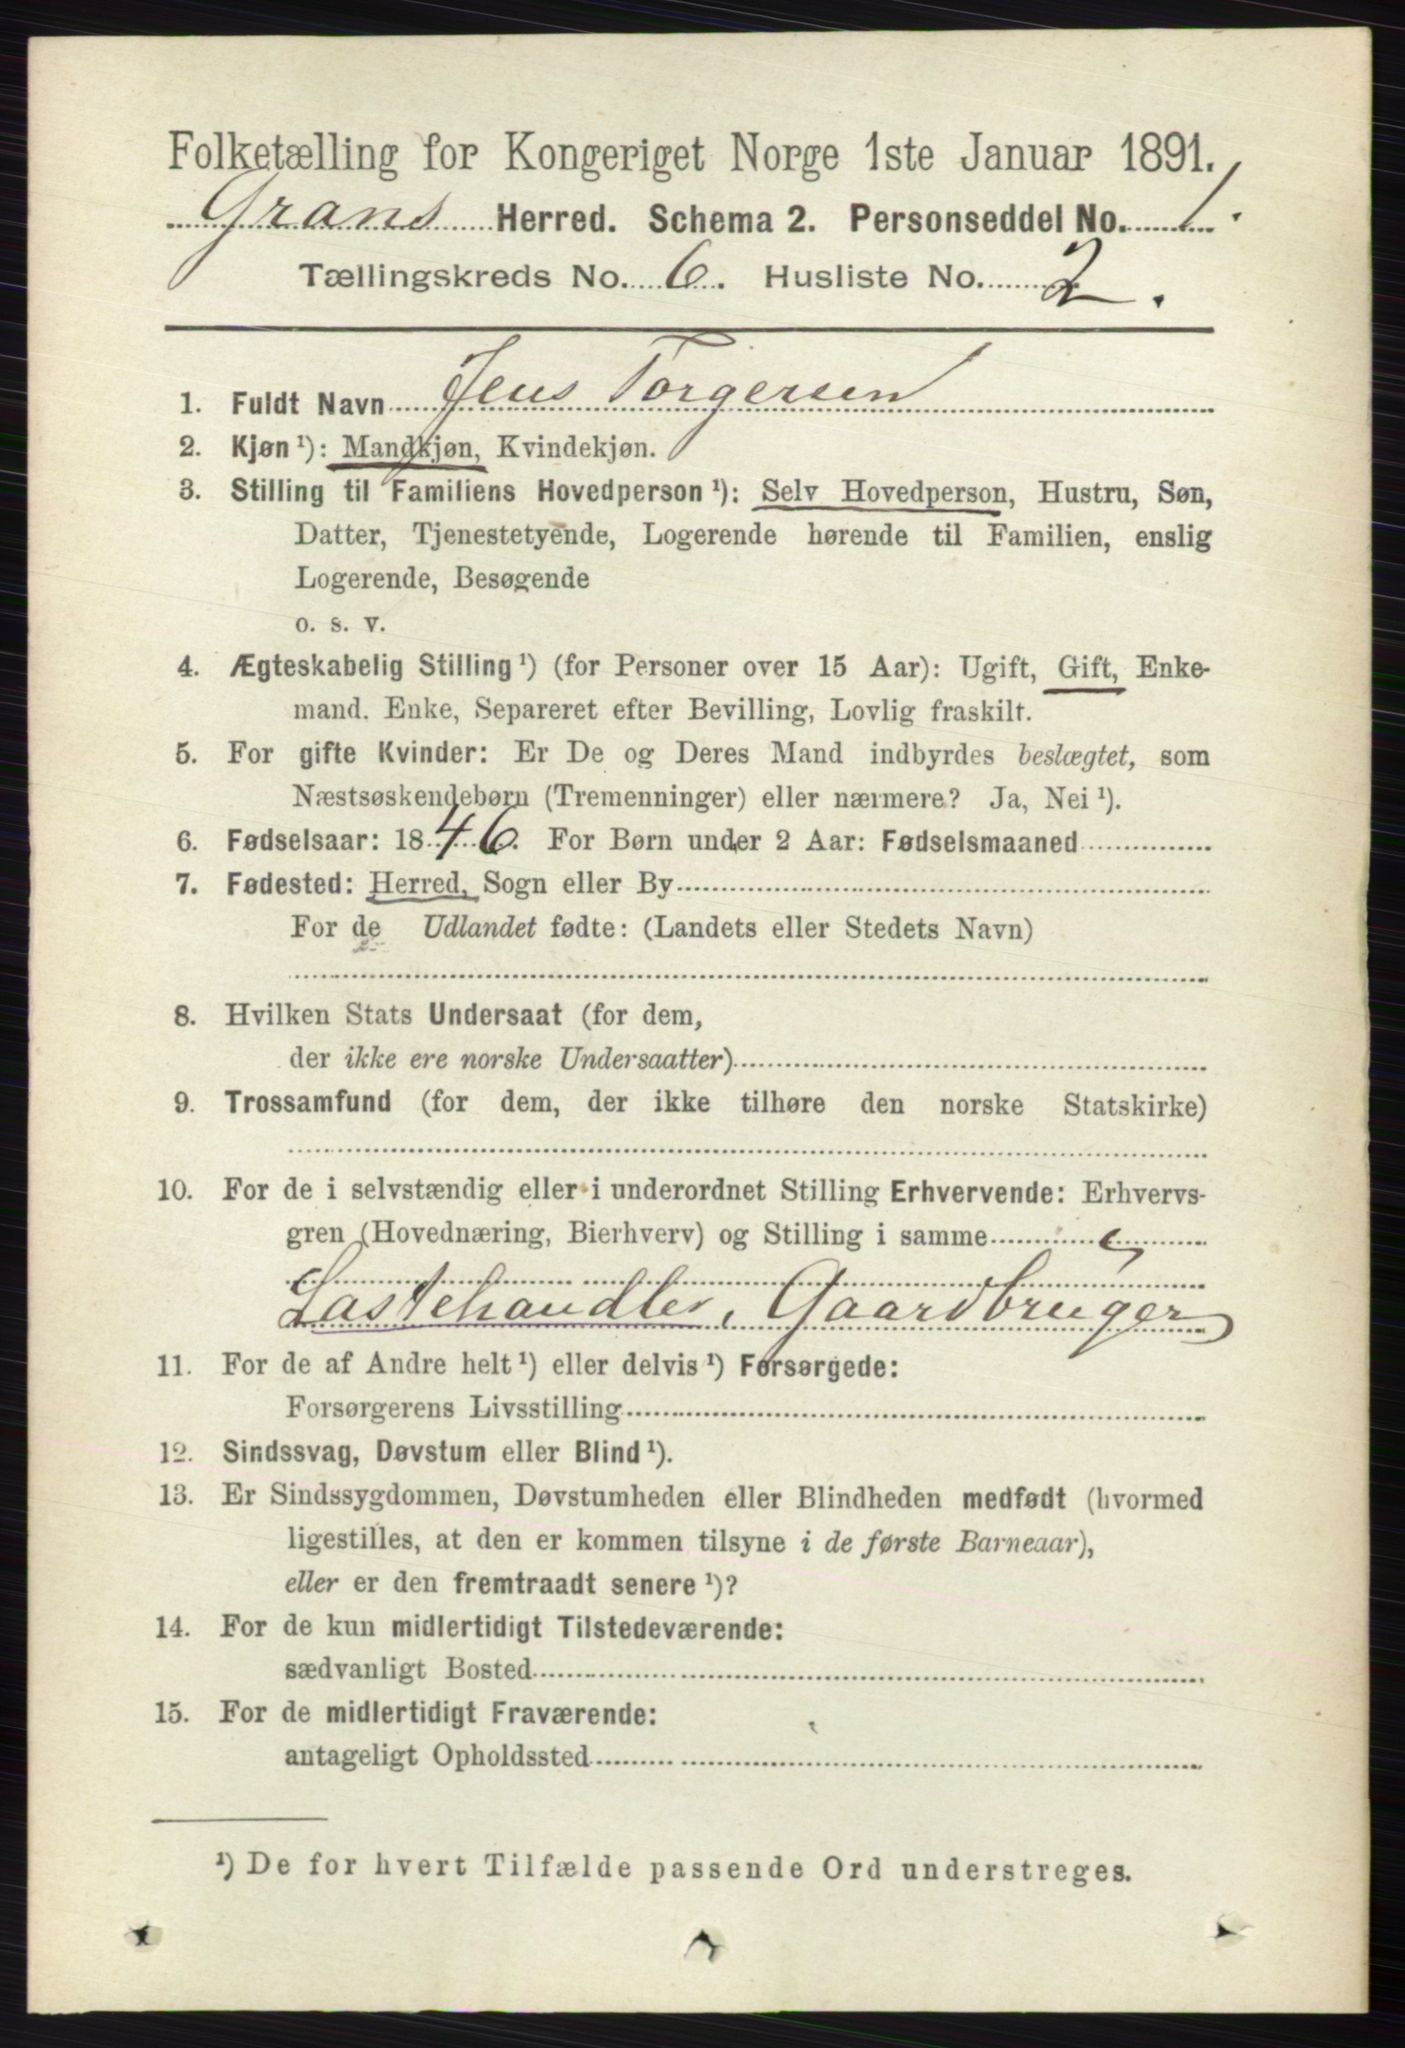 Folketælling for Kongeriget Norge 1ste Januar 1891.
Grans Herred. Schema 2. Personseddel No. 1.
Tællingskreds No. 6. Husliste No. 2.
1. Fuldt Navn Jens Torgersen
2. Kjøn¹): Mandkjøn, Kvindekjøn.
3. Stilling til Familiens Hovedperson¹): Selv Hovedperson, Hustru, Søn,
Datter, Tjenestetyende, Logerende hørende til Familien, enslig
Logerende, Besøgende
o. s. v.
4. Ægteskabelig Stilling¹) (for Personer over 15 Aar): Ugift, Gift, Enke-
mand, Enke, Separeret efter Bevilling, Lovlig fraskilt.
5. For gifte Kvinder: Er De og Deres Mand indbyrdes beslægtet, som
Næstsøskendebørn (Tremenninger) eller nærmere? Ja, Nei¹).
6. Fødselsaar: 1846. For Børn under 2 Aar: Fødselsmaaned
7. Fødested: Herred, Sogn eller By
For de Udlandet fødte: (Landets eller Stedets Navn)
8. Hvilken Stats Undersaat (for dem,
der ikke ere norske Undersaatter)
9. Trossamfund (for dem, der ikke tilhøre den norske Statskirke)
10. For de i selvstændig eller i underordnet Stilling Erhvervende: Erhvervs-
gren (Hovednæring, Bierhverv) og Stilling i samme
Lastehandler, Gaardbruger
11. For de af Andre helt¹) eller delvis¹) Forsørgede:
Forsørgerens Livsstilling
12. Sindssvag, Døvstum eller Blind¹).
13. Er Sindssygdommen, Døvstumheden eller Blindheden medfødt (hvormed
ligestilles, at den er kommen tilsyne i de første Barneaar),
eller er den fremtraadt senere¹)?
14. For de kun midlertidigt Tilstedeværende:
sædvanligt Bosted
15. For de midlertidigt Fraværende:
antageligt Opholdssted
¹) De for hvert Tilfælde passende Ord understreges.